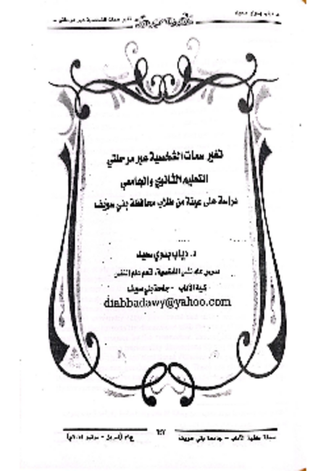 تغير سمات الشخصية عبر مرحلتي
التعليم الثانوي والجامعي
دراسة على عينة من طلاب محافظة بني سويف
د. دياب بدوي سعيد
مدرس علم نفس الشخصية، قسم علم النفس
كلية الآداب - جامعة بني سويف
diabbadawy@yahoo.com
مجلة كلية الآداب - جامعة بني سويف